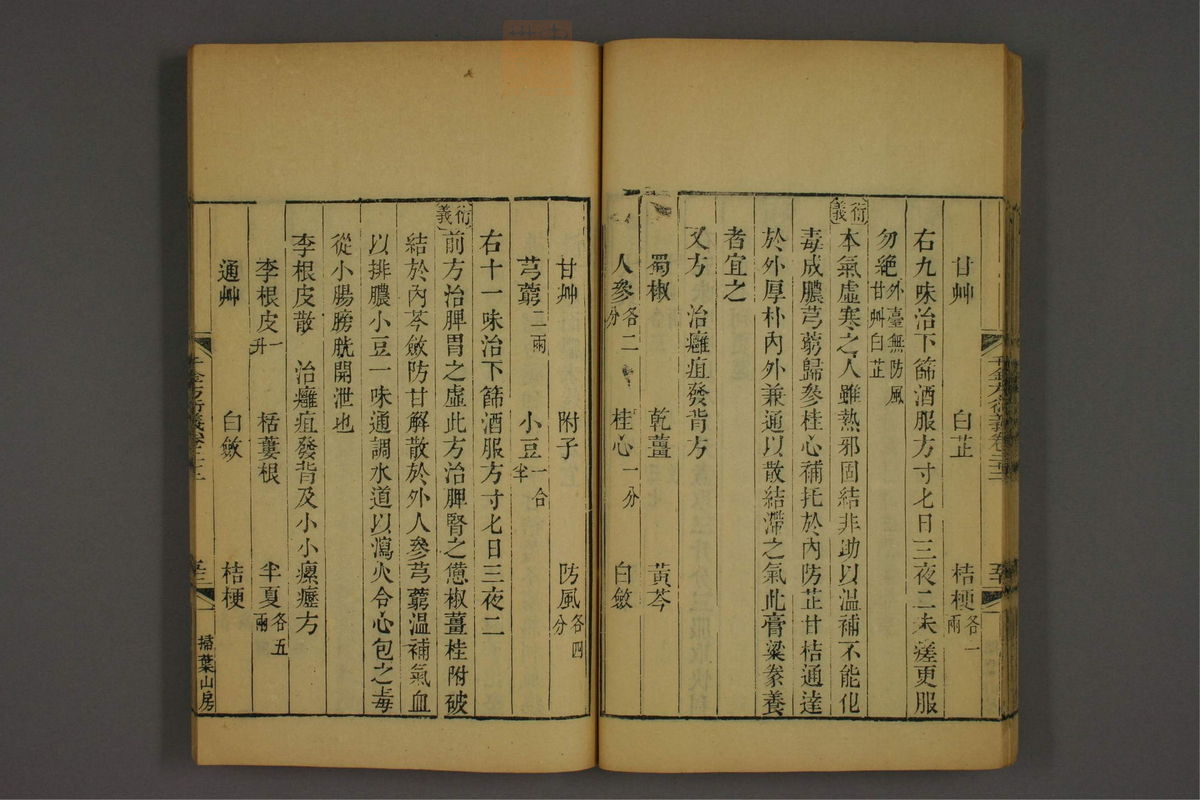 甘艸 白芷 桔梗各一兩
右九味治下篩酒服方寸匕日三夜二未瘥更服
勿絶外臺無防風甘艸白芷
衍義
本氣虛寒之人雖熱邪固結非助以温補不能化
毒成膿芎藭歸參桂心補托於內防芷甘桔通達
於外厚朴內外兼通以散結滯之氣此膏粱豢養
者宜之
又方 治癰疽發背方
蜀椒 乾薑 黃芩
人參各二分 桂心一分 白斂
甘艸 附子 防風各四分
芎藭二兩 小豆一合半
右十一味治下篩酒服方寸匕日三夜二
衍義
前方治脾胃之虛此方治脾腎之憊椒薑桂附破
結於內芩斂防甘解散於外人參芎藭温補氣血
以排膿小豆一味通調水道以瀉火合心包之毒
從小腸膀胱開泄也
李根皮散 治癰疽發背及小小瘰癧方
李根皮一升 栝蔞根 半夏各五兩
通艸 白斂 桔梗
掃葉山房